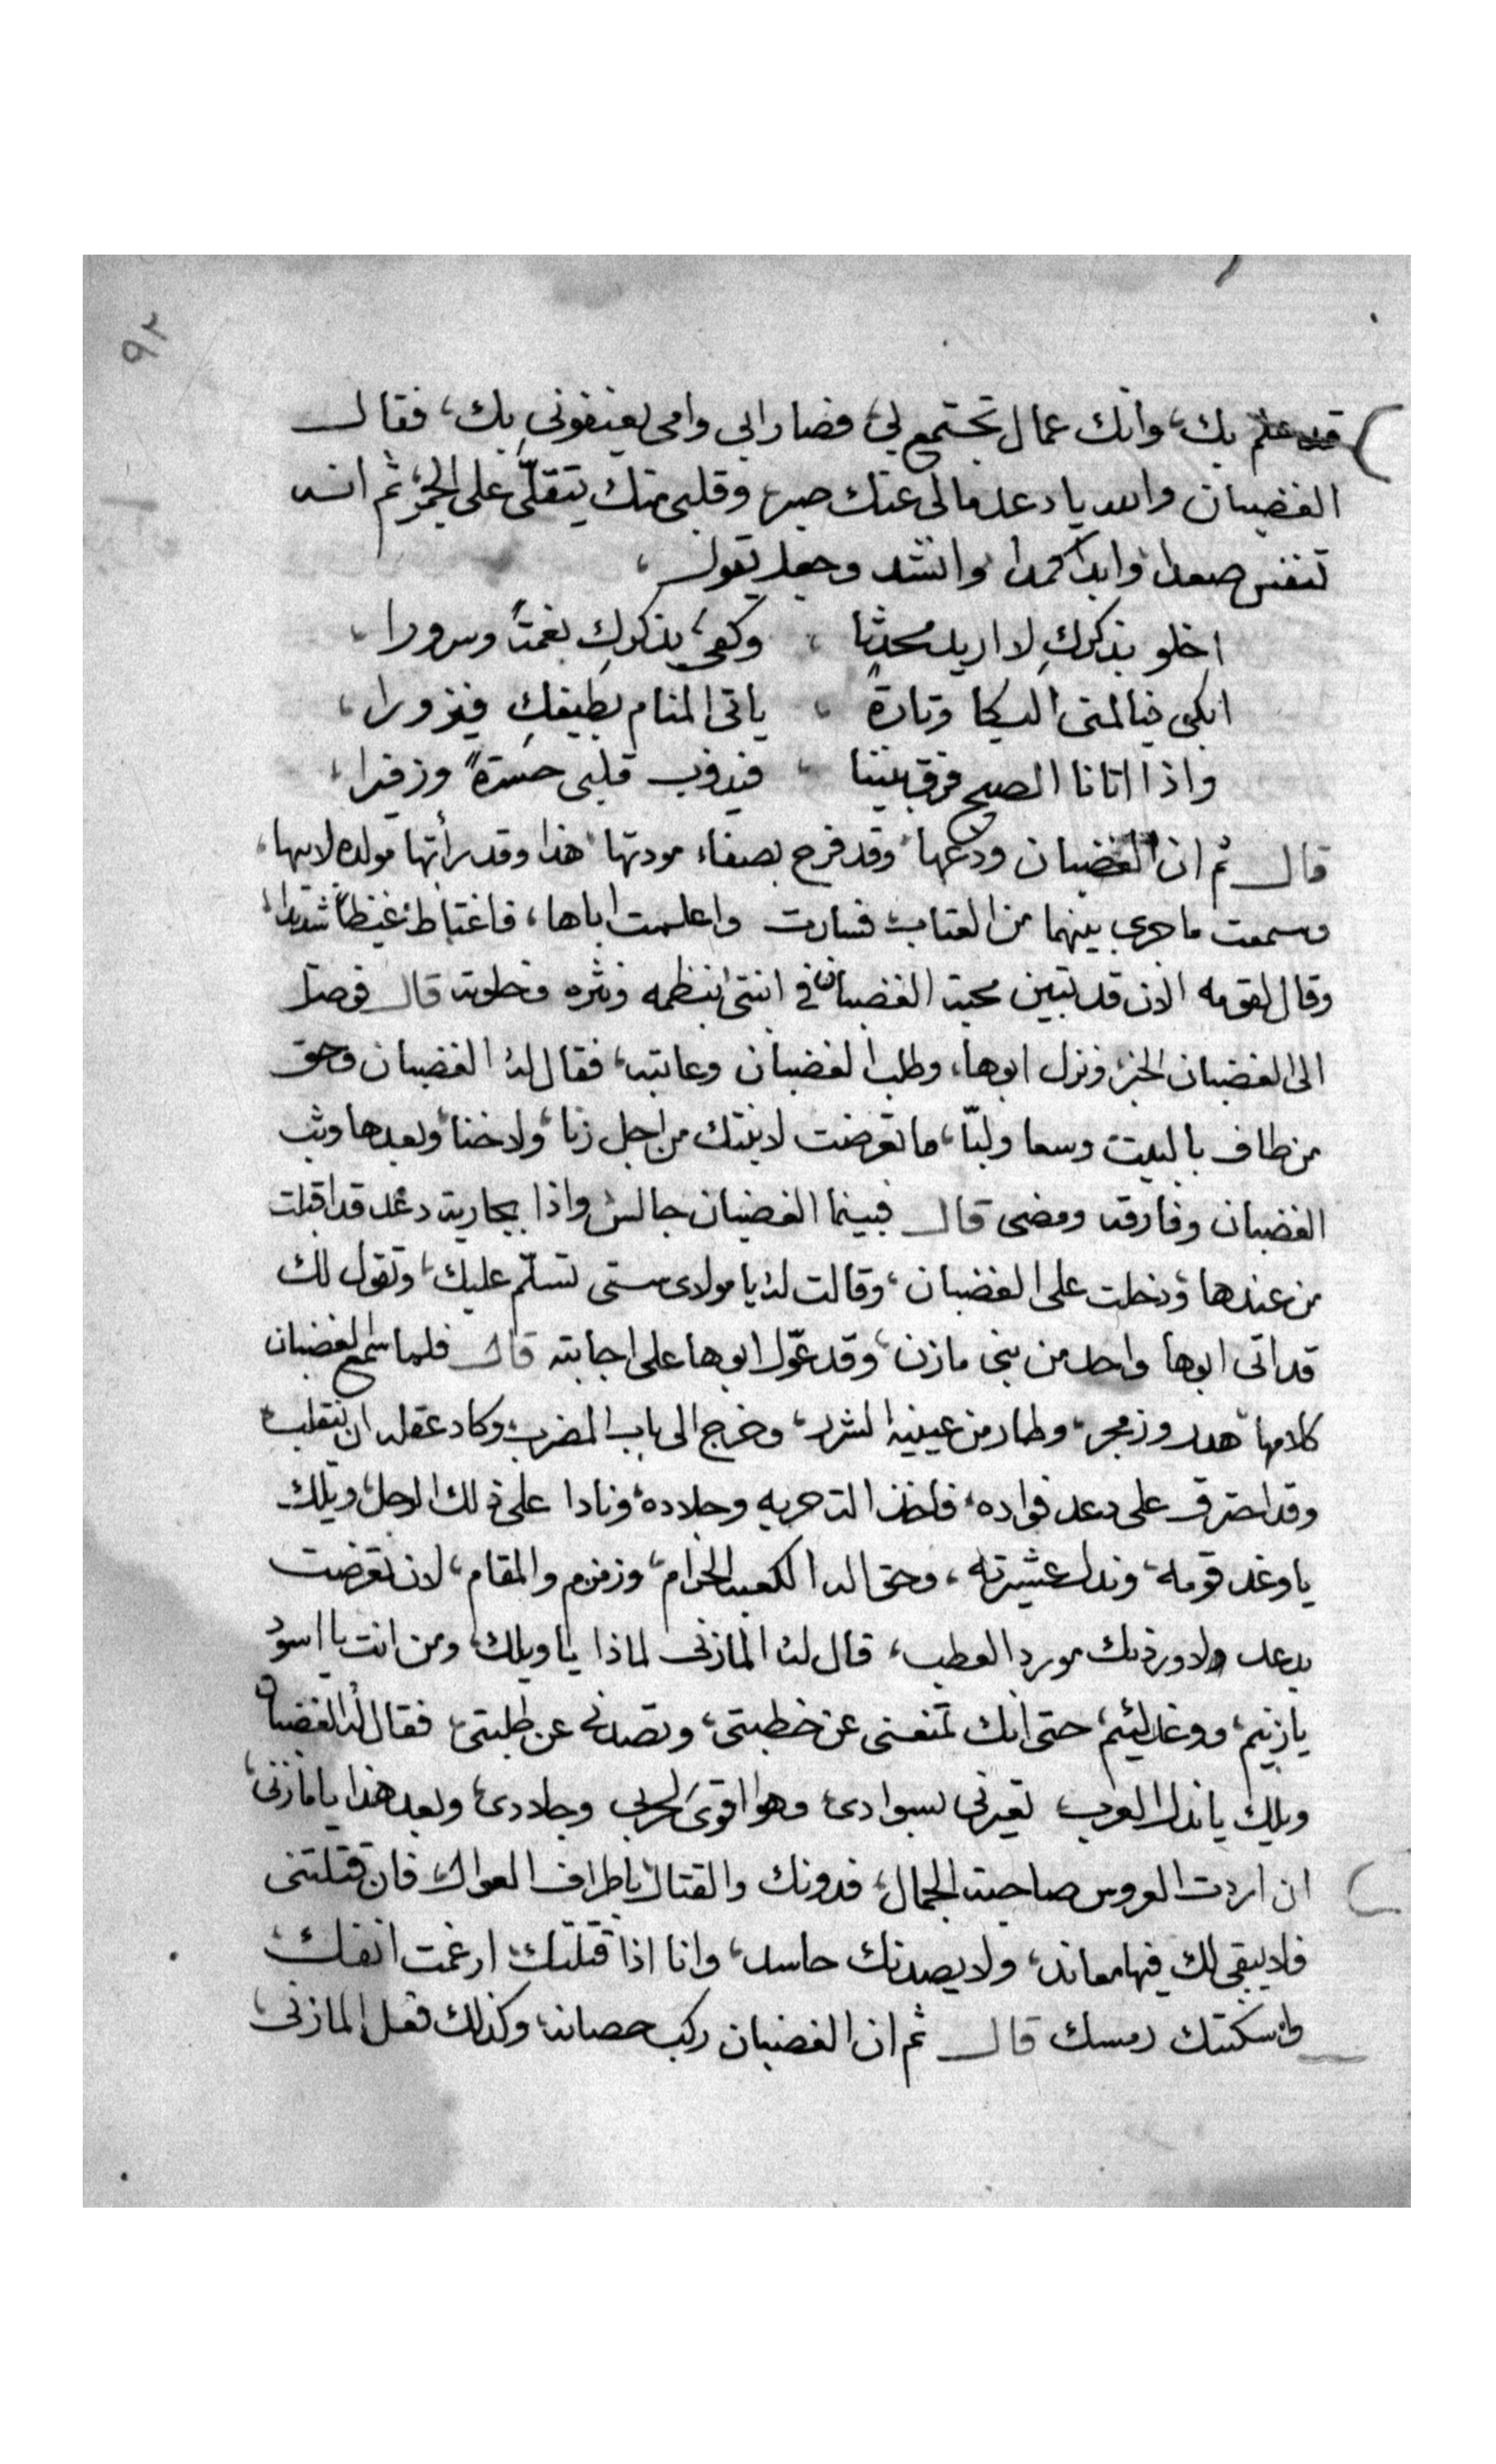 ٩٢
قد علم بك، وانك عمال تجتمع لي، فصار ابي وامي يعنفوني بك، فقال
الغضبان والله يا دعد مالي عنك صبر، وقلبي منك يتقلّى على الجمر، ثم انه
تنفس صعدا، وابدا كمدا، وانشد وجعل يقول،
اخلو بذكركِ لا اريد محدثا ، وكفى بذكركِ نعمتاً وسرورا،
ابكي فيا لمنى البكا وتارةً ، ياتي المنام بطيفكِ فيزورا،
واذا اتانا الصبح فرق بيننا ، فيذوب قلبي حسرةً وزفيرا،
قال ثم ان الغضبان ودعها، وقد فرح بصفاء مودتها، هذا وقد رأتها مولده لابيها،
وسمعت ما جرى بينهما من العتاب، فسارت واعلمت اباها، فاغتاط غيظاً شديدا،
وقال لقومه الان قد تبين محبة الغضبان في ابنتي بنظمه ونثره وخلوته قال فوصل
الى الغضبان الخبر، ونزل ابوها، وطلب الغضبان وعاتبه، فقال له الغضبان وحق
من طاف بالبيت وسعا ولبّا، ما تعرضت لابنتك من اجل زنا، ولا خنا، وبعدها وثب
الغضبان وفارقه ومضى قال فبينما الغضبان جالس واذا بجارية دعد قد اقبلت
من عندها، ودخلت على الغضبان، وقالت له يا مولاى ستى تسلّم عليك، وتقول لك
قد اتى ابوها واحد من بنى مازن، وقد عوّل ابوها على اجابته قال فلما سمع الغضبان
كلامها هدر وزمجر، وطار من عينيه الشرر، وخرج الى باب المضرب، وكاد عقله ان ينقلب،
وقد احترق على دعد فواده، فاخذ الة حربه وجلاده، ونادا على ذلك الرجل، ويلك
يا وغد قومه، وندل عشيرته، وحق الله الكعبه الحرام، وزمزم والمقام، لان تعرضت
بدعد ولا وردنك مورد العطب، قال له المازنى لماذا يا ويلك، ومن انت يا اسود
يا زنيم، ووغد لئيم، حتى انك تمنعنى عن خطبتى، وتصدني عن طلبتى، فقال له الغضبان
ويلك يا ندل العرب تعيرني بسوادى، وهو اقوى لحربي وجلادى، وبعد هذا يا مازنى،
ان اردت العروس صاحبة الجمال، فدونك والقتال، باطراف العوال، فان قتلتنى
فلا يبقى لك فيها معاند، ولا يصدنك حاسد، وانا اذا قتلتك، ارغمت انفك،
واسكنتك رمسك قال ثم ان الغضبان ركب حصانه، وكذلك فعل المازنى،